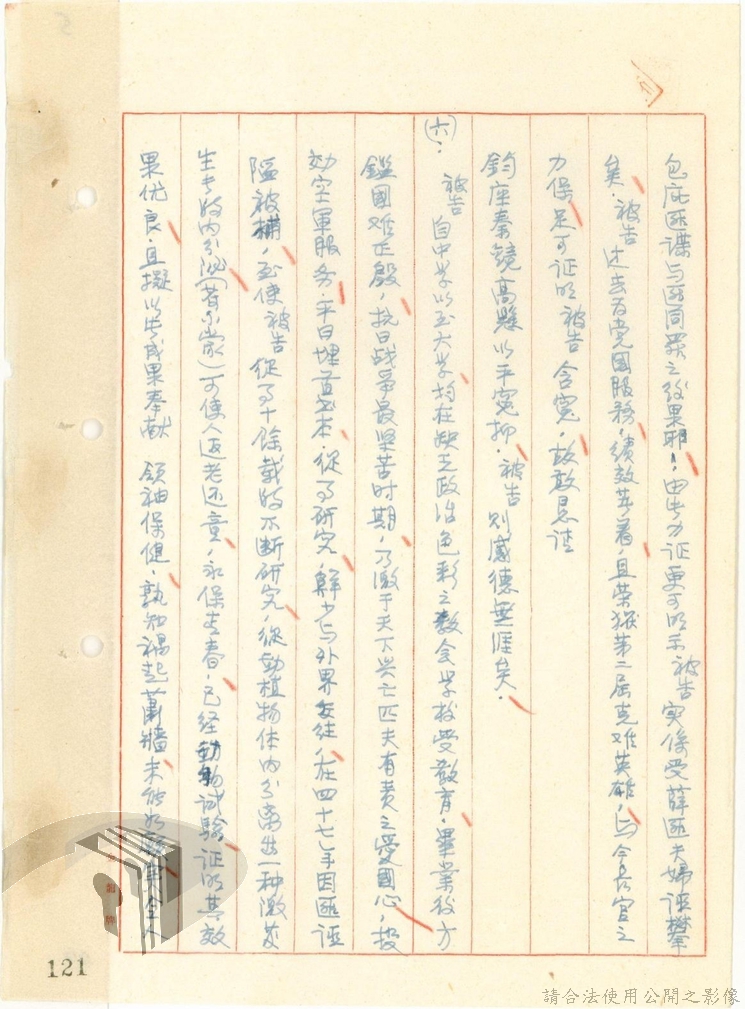 包庇匪諜与匪同罪之效果耶，由此力证更可明示被告实係受薛匪夫婦诬攀
矣．被告过去为党国服務，績效昭著，且荣获第二届克难英雄，与令長官之
力保，足可证明被告含冤，故敢恳请
鈞座秦镜高懸以平冤抑．被告则感德無涯矣．
(六)．被告自中学以至大学，均在缺乏政治色彩之教会学校受教育，畢業後方
鑑國难正殷，抗日战爭最坚苦时期，乃激于天下兴亡匹夫有责之愛國心，投
効空軍服务．平日埋首书本．從事研究，鮮少与外界往，在四十七年因匪诬
陷被捕，致使被告從事十餘載的不断研究，從動植物体内分离出一种激发
生长的内分泌(荷尔蒙)可使人返老还童，永保青春，已经動物试驗证明其效
果优良，且擬以此成果奉献 領袖保健，孰知禍起蕭牆未能如
121
請合法使用公開之影像